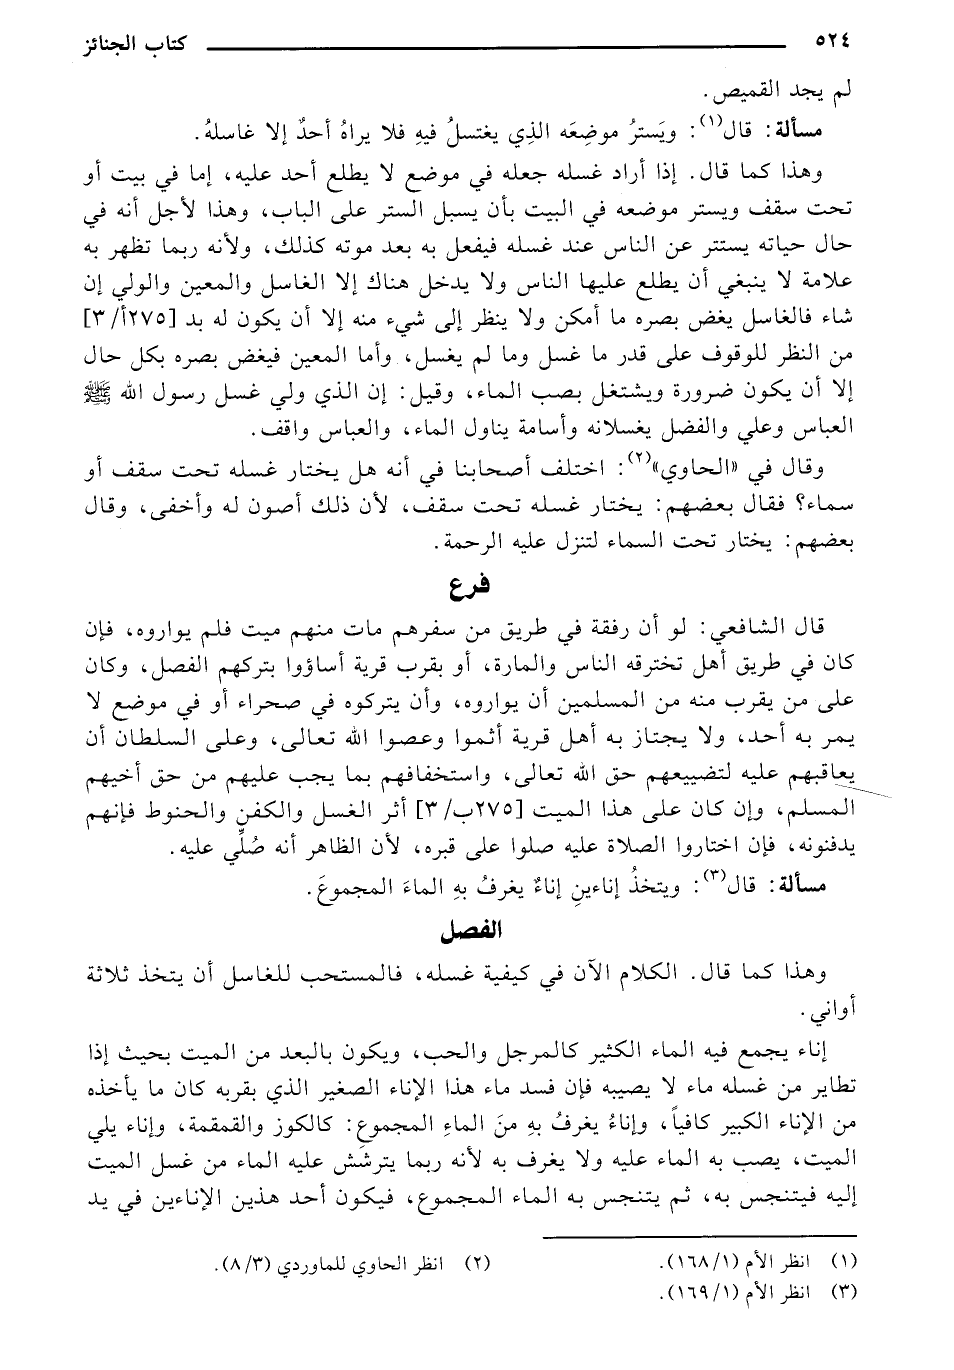 ٥٢٤ كتاب الجنائز
لم يجد القميص.
مسألة: قال(١): ويَسترُ موضِعَه الذِي يغتسلُ فيهِ فلا يراهُ أحدٌ إلا غاسلهُ.
وهذا كما قال. إذا أراد غسله جعله في موضع لا يطلع أحد عليه، إما في بيت أو
تحت سقف ويستر موضعه في البيت بأن يسبل الستر على الباب، وهذا لأجل أنه في
حال حياته يستتر عن الناس عند غسله فيفعل به بعد موته كذلك، ولأنه ربما تظهر به
علامة لا ينبغي أن يطلع عليها الناس ولا يدخل هناك إلا الغاسل والمعين والولي إن
شاء فالغاسل يغض بصره ما أمكن ولا ينظر إلى شيء منه إلا أن يكون له بد [٢٧٥أ/ ٣]
من النظر للوقوف على قدر ما غسل وما لم يغسل، وأما المعين فيغض بصره بكل حال
إلا أن يكون ضرورة ويشتغل بصب الماء، وقيل: إن الذي ولي غسل رسول الله ﷺ
العباس وعلي والفضل يغسلانه وأسامة يناول الماء، والعباس واقف.
وقال في «الحاوي»(٢): اختلف أصحابنا في أنه هل يختار غسله تحت سقف أو
سماء؟ فقال بعضهم: يختار غسله تحت سقف، لأن ذلك أصون له وأخفى، وقال
بعضهم: يختار تحت السماء لتنزل عليه الرحمة.
فرع
قال الشافعي: لو أن رفقة في طريق من سفرهم مات منهم ميت فلم يواروه، فإن
كان في طريق أهل تخترقه الناس والمارة، أو بقرب قرية أساؤوا بتركهم الفصل، وكان
على من يقرب منه من المسلمين أن يواروه، وأن يتركوه في صحراء أو في موضع لا
يمر به أحد، ولا يجتاز به أهل قرية أثموا وعصوا الله تعالى، وعلى السلطان أن
يعاقبهم عليه لتضييعهم حق الله تعالى، واستخفافهم بما يجب عليهم من حق أخيهم
المسلم، وإن كان على هذا الميت [٢٧٥ب/ ٣] أثر الغسل والكفن والحنوط فإنهم
يدفنونه، فإن اختاروا الصلاة عليه صلوا على قبره، لأن الظاهر أنه صُلِّي عليه.
مسألة: قال(٣): ويتخذُ إناءينِ إناءٌ يغرفُ بهِ الماءَ المجموعَ.
الفصل
وهذا كما قال. الكلام الآن في كيفية غسله، فالمستحب للغاسل أن يتخذ ثلاثة
أواني.
إناء يجمع فيه الماء الكثير كالمرجل والحب، ويكون بالبعد من الميت بحيث إذا
تطاير من غسله ماء لا يصيبه فإن فسد ماء هذا الإناء الصغير الذي بقربه كان ما يأخذه
من الإناء الكبير كافياً، وإناءُ يغرفُ بهِ منَ الماءِ المجموع: كالكوز والقمقمة، وإناء يلي
الميت، يصب به الماء عليه ولا يغرف به لأنه ربما يترشش عليه الماء من غسل الميت
إليه فيتنجس به، ثم يتنجس به الماء المجموع، فيكون أحد هذين الإناءين في يد
(١) انظر الأم (١/ ١٦٨). (٢) انظر الحاوي للماوردي (٣/ ٨).
(٣) انظر الأم (١/ ١٦٩).